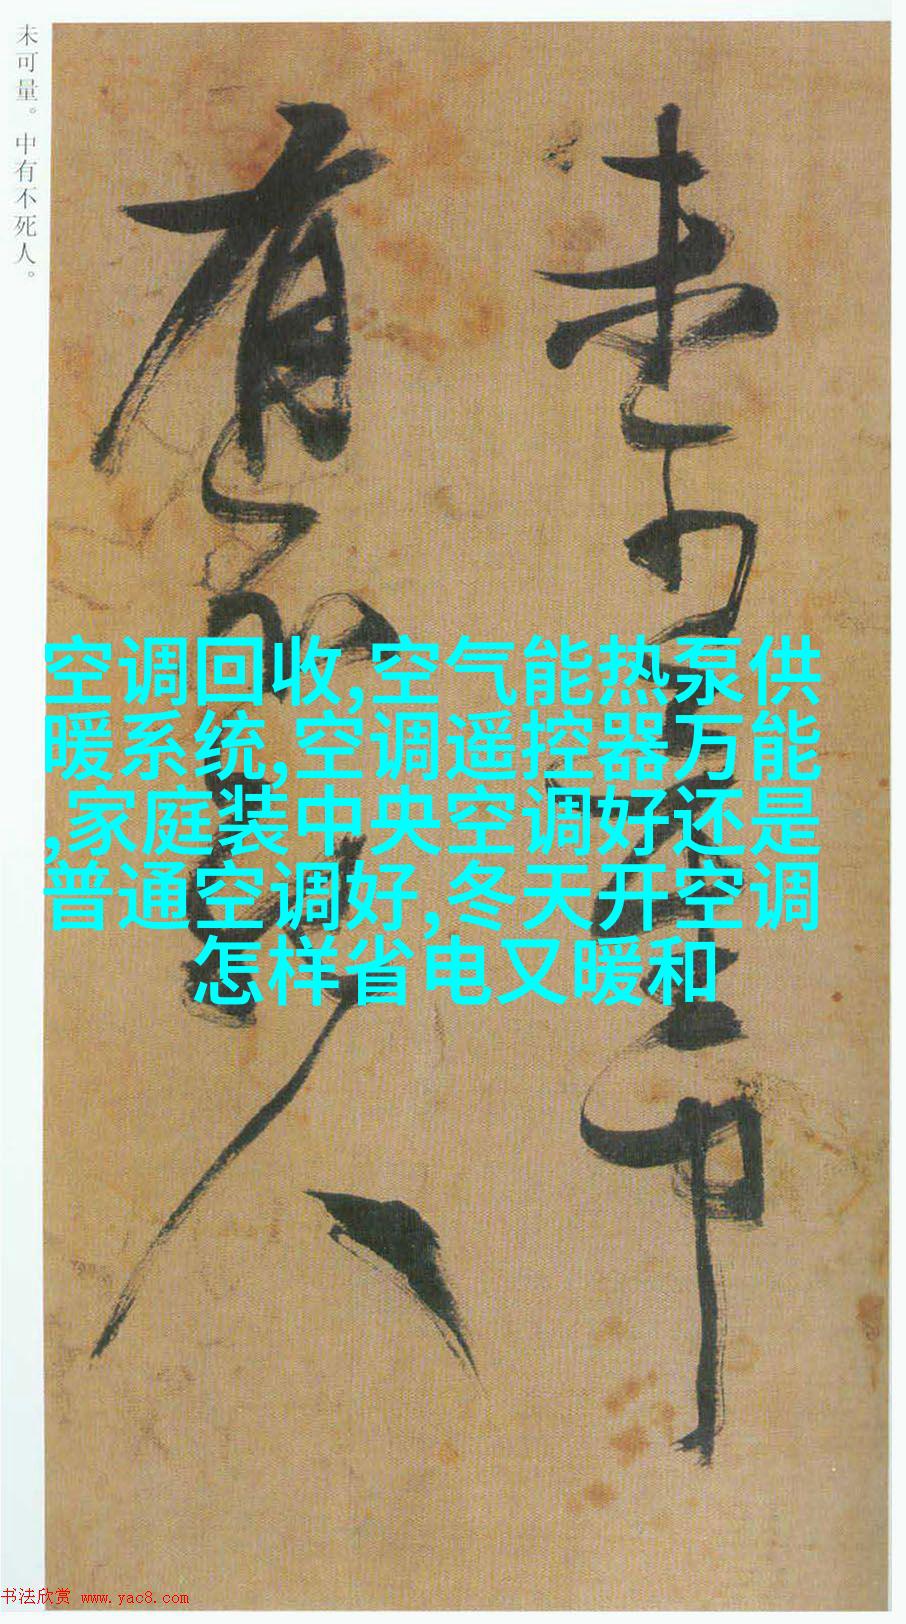 未可量。中有不死人。
未可量中
有不死人
空调回收,空气能热泵供
暖系统,空调遥控器万能
,家庭装中央空调好还是
普通空调好,冬天开空调
怎样省电又暖和
书法欣赏 www.yac8.com